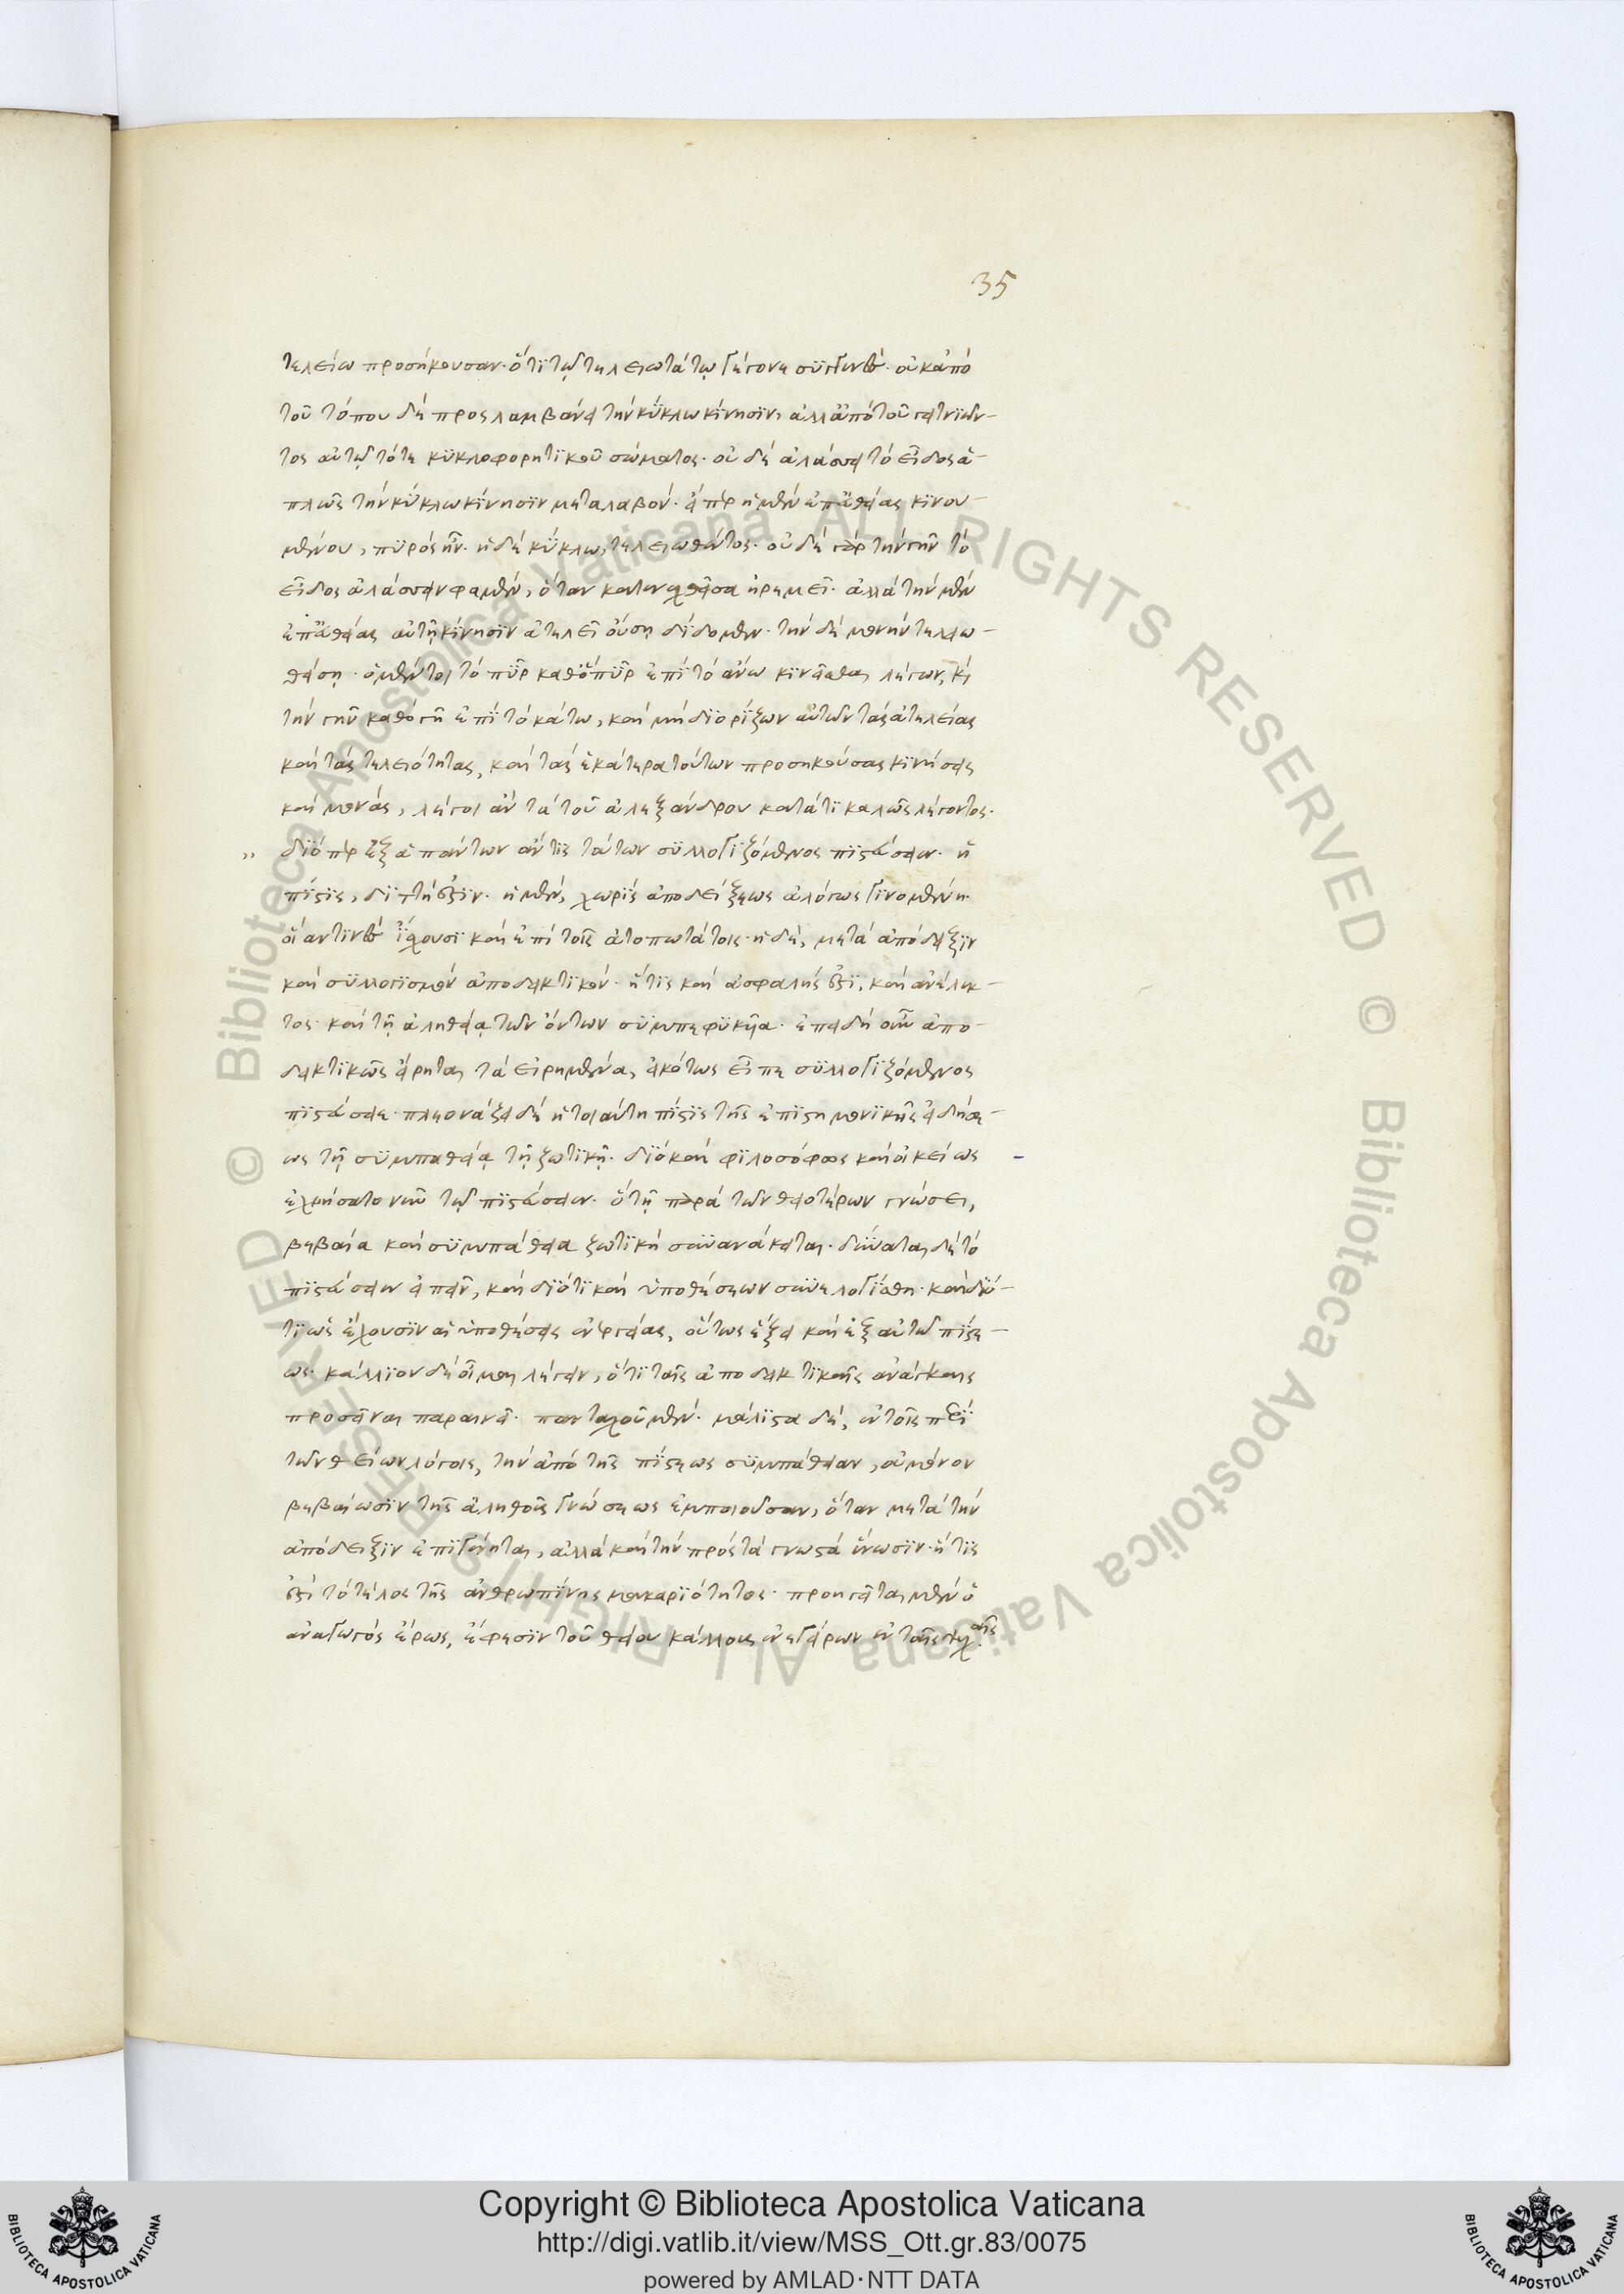 35
τελείω προσήκουσαν· ὅτι τῷ τελειοτάτῳ γέγονε συγγενές. οὐκ ἀπὸ
τοῦ τόπου δὲ προσλαμβάνει τὴν κύκλω κίνησιν, ἀλλ' ἀπὸ τοῦ γειτνιῶν-
τος αὐτῷ τότε κυκλοφορητικοῦ σώματος. οὐδὲ ἀλάσσει τὸ εἶδος ἁ-
πλῶς τὴν κύκλω κίνησιν μεταλαβόν. εἴπερ ἡ μὲν ἐπ' εὐθείας κινου-
μένου, πυρὸς ἦν. ἡ δὲ κύκλω, τελειωθέντος. οὐδὲ γὰρ τὴν γῆν τὸ
εἶδος ἀλάσσειν φαμὲν, ὅταν κατενεχθεῖσα ἠρεμεῖ. ἀλλὰ τὴν μὲν
ἐπ' εὐθείας αὐτῇ κίνησιν ἀτελεῖ οὔση δίδομεν. τὴν δὲ μονὴν τελειω-
θείσῃ. ὁ μέντοι τὸ πῦρ καθὸ πῦρ ἐπὶ τὸ ἄνω κινεῖσθαι λέγων, καὶ
τὴν γῆν καθὸ γῆ ἐπὶ τὸ κάτω, καὶ μὴ διορίζων αὐτῶν τὰς ἀτελείας
καὶ τὰς τελειότητας, καὶ τὰς ἑκάτερα τούτων προσηκούσας κινήσεις
καὶ μονὰς, λέγοι ἂν τὰ τοῦ ἀλεξάνδρου κατά τι καλῶς λέγοντος.
" διόπερ ἐξ ἁπάντων ἄν τις τούτων συλλογιζόμενος πιστεύσειεν. ἡ
πίστις, διττή ἐστιν. ἡ μὲν, χωρὶς ἀποδείξεως ἀλόγως γινομένη.
οἵαν τινὲς ἴσχουσι καὶ ἐπὶ τοῖς ἀτοπωτάτοις. ἡ δὲ, μετὰ ἀπόδειξιν
καὶ συλλογισμὸν ἀποδεικτικόν. ἥτις καὶ ἀσφαλής ἐστι, καὶ ἀνέλεγκ-
τος. καὶ τῇ ἀληθείᾳ τῶν ὄντων συμπεφυκῆα. ἐπειδὴ οὖν ἀπο-
δεικτικῶς εἴρηται τὰ εἰρημένα, εἰκότως εἶπε συλλογιζόμενος
πιστεύσειε. πλεονάζει δὲ ἡ τοιαύτη πίστις τῆς ἐπιστημονικῆς εἰδήσε-
ως τῇ συμπαθείᾳ τῇ ζωτικῇ. διὸ καὶ φιλοσόφως καὶ οἰκείως
ἐχρήσατο νῦν τῷ πιστεύσειεν. ὅτι τῇ περὶ τῶν θειοτέρων γνώσει,
βεβαία καὶ συμπάθεια ζωτικὴ συνανάκειται. δύναται δὲ τὸ
πιστεύσειεν εἰπεῖν, καὶ διότι καὶ ὑποθέσεων συνελογίσθη. καὶ διό-
τι ὡς ἔχουσιν αἱ ὑποθέσεις ἐνεργείας, οὕτως ἕξει καὶ ἐξ αὐτῶν πίστε-
ως. κάλλιον δὲ οἶμαι λέγειν, ὅτι ταῖς ἀποδεικτικαῖς ἀνάγκαις
προσεῖναι παραινεῖ πανταχοῦ μὲν. μάλιστα δὲ, ἐν τοῖς περὶ
τῶν θείων λόγοις, τὴν ἀπὸ τῆς πίστεως συμπάθειαν, οὐ μόνον
βεβαίωσιν τῆς ἀληθοῦς γνώσεως ἐμποιοῦσαν, ὅταν μετὰ τὴν
ἀπόδειξιν ἐπιγένηται, ἀλλὰ καὶ τὴν πρὸς τὰ γνωστὰ ἕνωσιν. ἥτις
ἐστὶ τὸ τέλος τῆς ἀνθρωπίνης μακαριότητος. προηγεῖται μὲν ὁ
ἀναγωγὸς ἔρως, ἔφεσιν τοῦ θείου κάλλους ἀνεγείρων ἐν ταῖς ψυχαῖς
Copyright © Biblioteca Apostolica Vaticana
http://digi.vatlib.it/view/MSS_Ott.gr.83/0075
powered by AMLAD·NTT DATA
BIBLIOTECA APOSTOLICA VATICANA
BIBLIOTECA APOSTOLICA VATICANA
© Biblioteca Apostolica Vaticana ALL RIGHTS RESERVED © Biblioteca Apostolica Vaticana ALL RIGHTS RESERVED